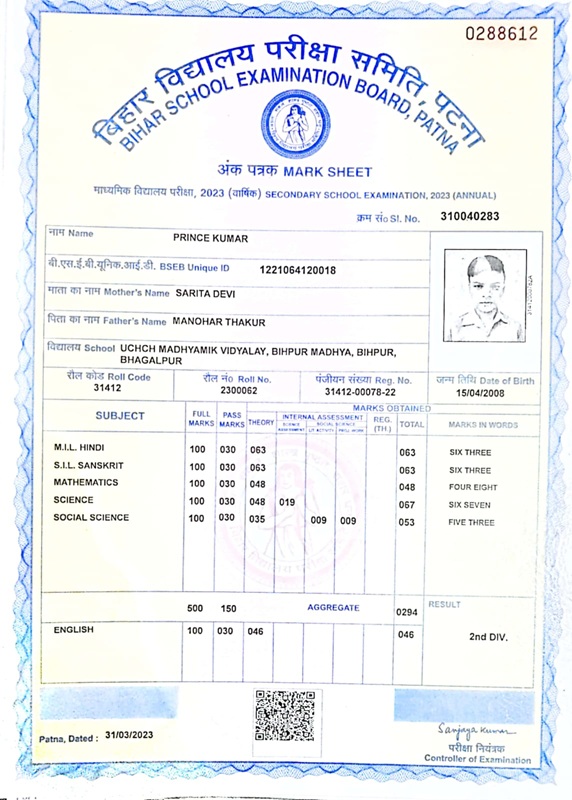 0288612
बिहार विद्यालय परीक्षा समिति, पटना
BIHAR SCHOOL EXAMINATION BOARD, PATNA
अंक पत्रक MARK SHEET
माध्यमिक विद्यालय परीक्षा, 2023 (वार्षिक) SECONDARY SCHOOL EXAMINATION, 2023 (ANNUAL)
क्रम सं० Sl. No. 310040283
नाम Name PRINCE KUMAR
बी.एस.ई.बी.यूनिक.आई.डी. BSEB Unique ID 1221064120018
माता का नाम Mother's Name SARITA DEVI
पिता का नाम Father's Name MANOHAR THAKUR
विद्यालय School UCHCH MADHYAMIK VIDYALAY, BIHPUR MADHYA, BIHPUR,
BHAGALPUR
रौल कोड Roll Code रौल नं० Roll No. पंजीयन संख्या Reg. No. जन्म तिथि Date of Birth
31412 2300062 31412-00078-22 15/04/2008
SUBJECT FULL MARKS PASS MARKS MARKS OBTAINED
THEORY INTERNAL ASSESSMENT REG. (TH.) TOTAL MARKS IN WORDS
SCIENCE SOCIAL SCIENCE
M.I.L. HINDI 100 030 063 063 SIX THREE
S.I.L. SANSKRIT 100 030 063 063 SIX THREE
MATHEMATICS 100 030 048 048 FOUR EIGHT
SCIENCE 100 030 048 019 067 SIX SEVEN
SOCIAL SCIENCE 100 030 035 009 009 053 FIVE THREE
500 150 AGGREGATE 0294 RESULT
ENGLISH 100 030 046 046 2nd DIV.
Patna, Dated : 31/03/2023
Sanjaya Kumar
परीक्षा नियंत्रक
Controller of Examination